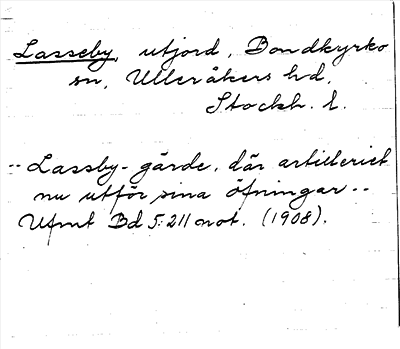 Lasseby, utjord, Bondkyrko
sn, Ulleråkers hd.
Stockh. l.
-- Lassby-gärde, där artilleriet
nu utför sina öfningar --
Ufmt Bd 5:211 not. (1908).